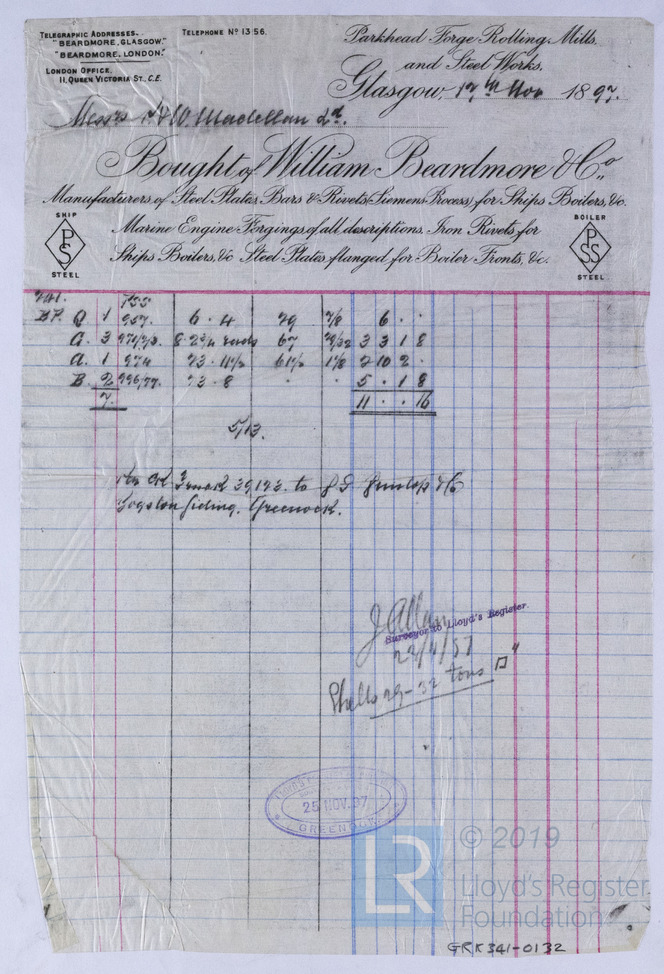 TELEGRAPHIC ADDRESSES.
"BEARDMORE, GLASGOW."
"BEARDMORE, LONDON."
LONDON OFFICE,
11, QUEEN VICTORIA ST., E.C.
TELEPHONE No 1356.
Parkhead Forge Rolling Mills,
and Steel Works,
Glasgow, 17th Nov 1897.
Messrs P & W Maclellan Ld.
Bought of William Beardmore & Co.,
Manufacturers of Steel Plates, Bars & Rivets (Siemens Process), for Ships Boilers, &c.
Marine Engine Forgings of all descriptions. Iron Rivets for
Ships Boilers, &c Steel Plates flanged for Boiler Fronts, &c.
SHIP
PS
STEEL
BOILER
PSS
STEEL
B.P. Q 1 957. 6 . 4 79 7/8 6 . .
G. 3 8 . 2 3/4 rads 67 29/32 3 3 1 8
A. 1 974 23 . 11 1/2 61 1/2 1 1/8 2 10 2 .
B. 2 996/97. 23 . 8 . . 5 . 1 8
7. 11 . . 16
5/13.
Truck 39123. to J G & Co
Siding. Greenock.
J Allan
Surveyor to Lloyd's Register.
Shells 29-32 tons □"
25 NOV. 97
GREENOCK
© 2019
LR
Lloyd's Register
Foundation
GRK341-0132